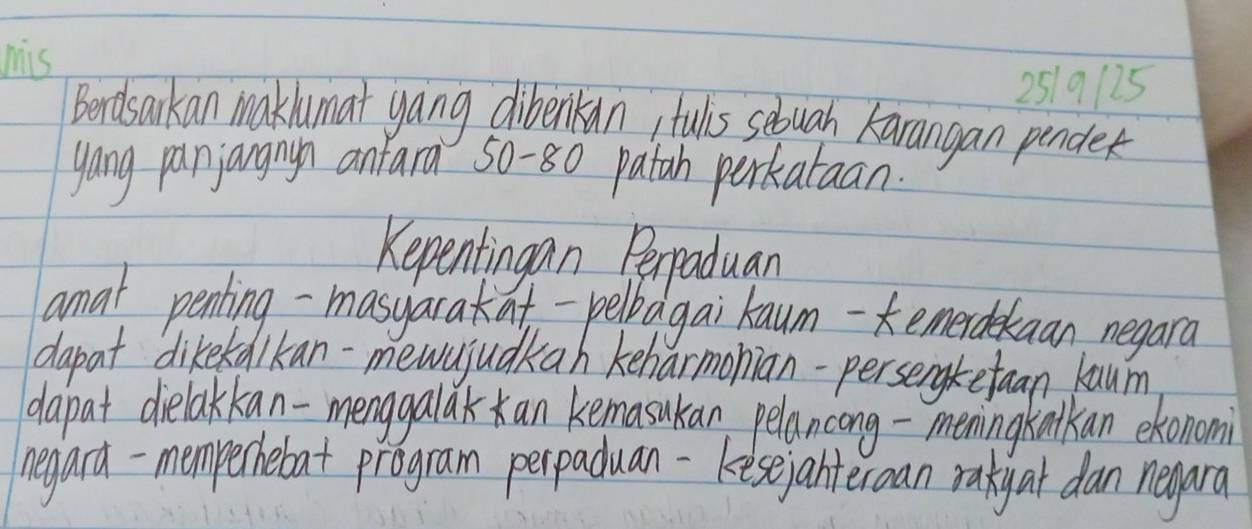 mis
25/9/25
Berdsarkan maklumat yang diberikan, tulis sebuah karangan pendek
yang panjangnyn antara 50-80 patah perkataan.
Kepentingan Perpaduan
amat penting - masyarakat - pelbagai kaum - kemerdekaan negara
dapat dikekalkan - mewujudkan keharmonian - persengketaan kaum
dapat dielakkan - menggalakkan kemasukan pelancong - meningkatkan ekonomi
negara - memperhebat program perpaduan - kesejahteraan rakyat dan negara